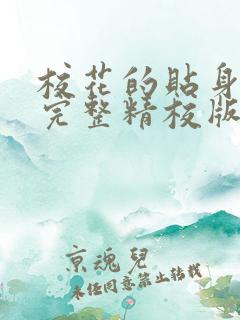 校花的貼身
完整精校版
京魂兒
未经同意禁止转载